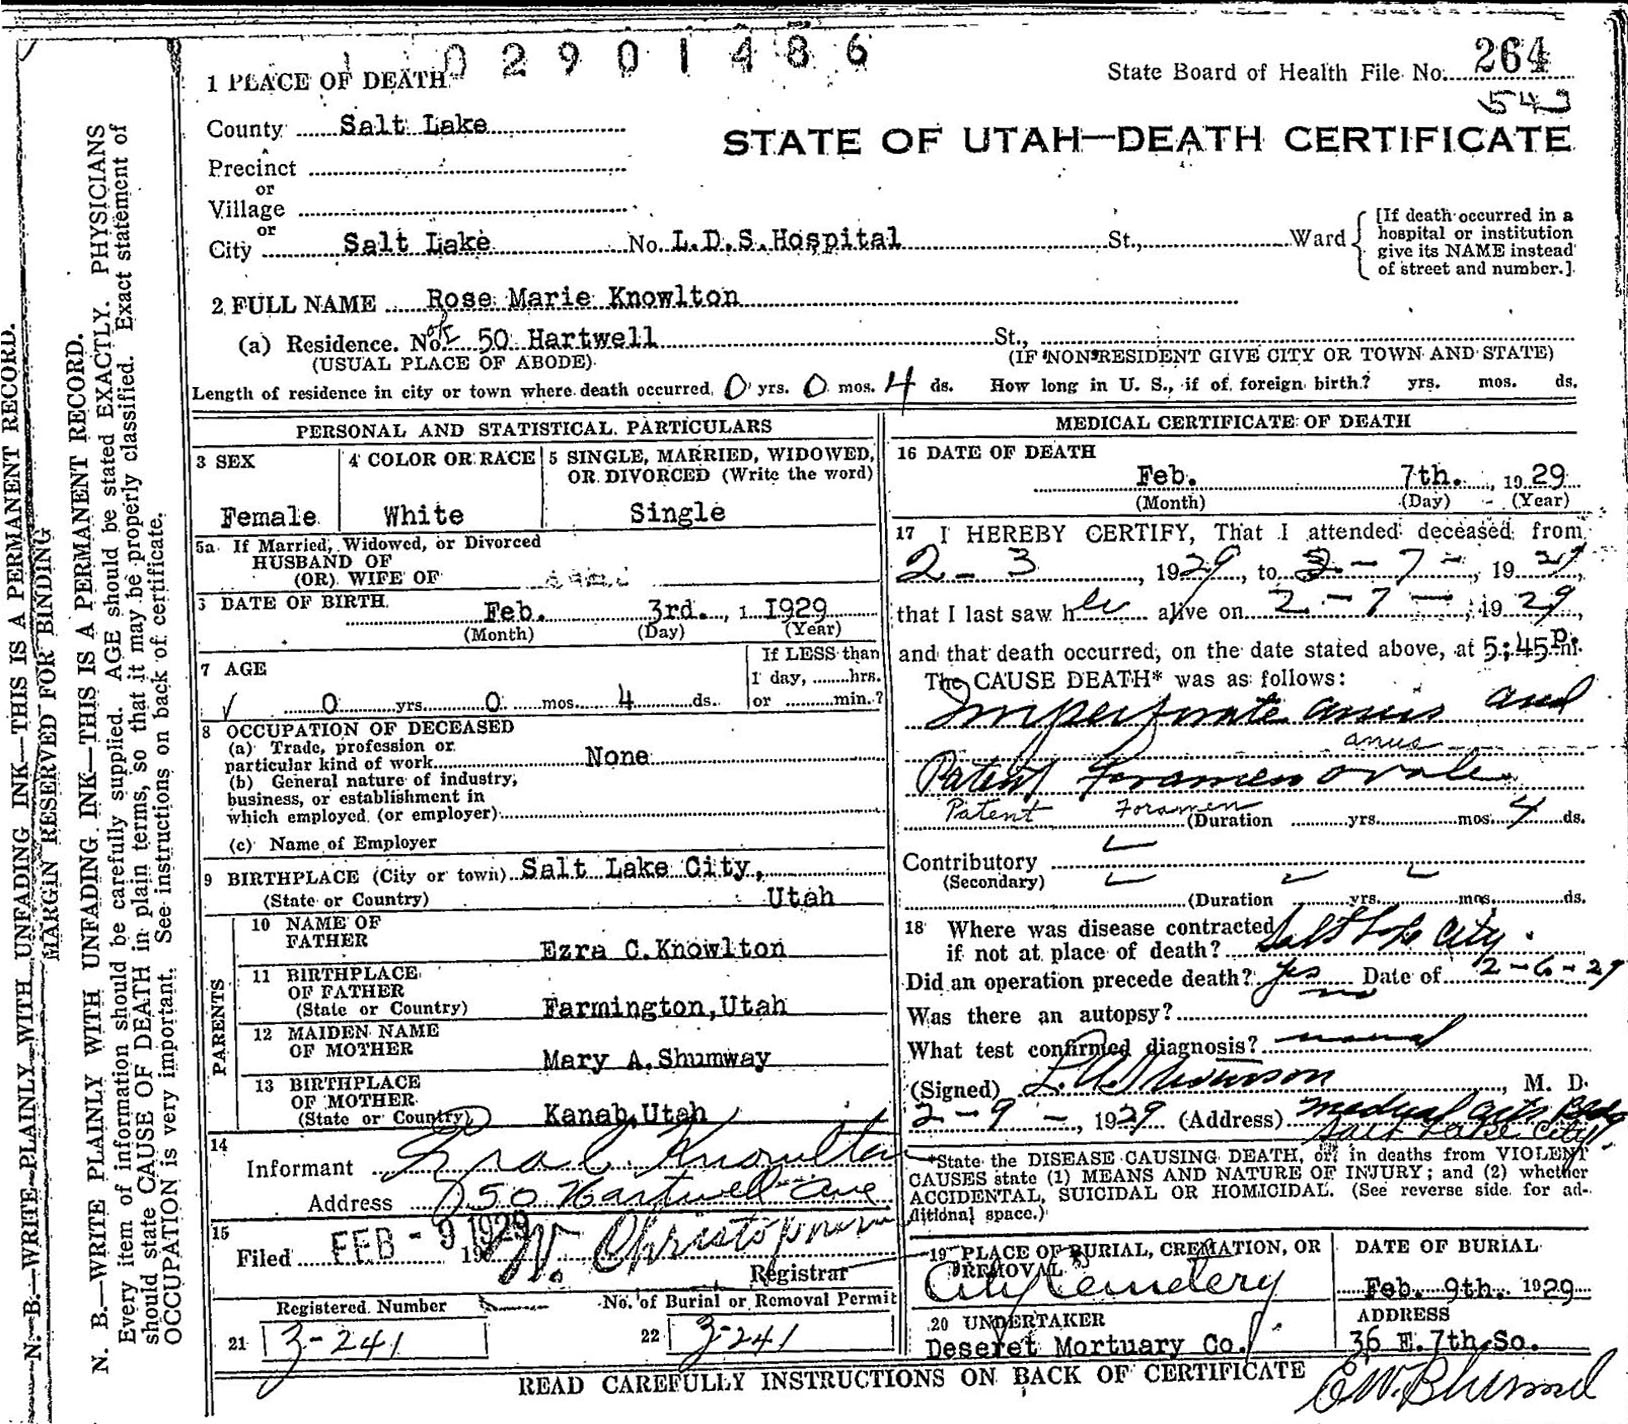 02901486
1 PLACE OF DEATH
State Board of Health File No. 264
543
County Salt Lake
STATE OF UTAH—DEATH CERTIFICATE
Precinct
or
Village
or
City Salt Lake No. L.D.S. Hospital St., Ward
[If death occurred in a
hospital or institution
give its NAME instead
of street and number.]
2 FULL NAME Rose Marie Knowlton
(a) Residence. No. 50 Hartwell St.,
(USUAL PLACE OF ABODE) (IF NONRESIDENT GIVE CITY OR TOWN AND STATE)
Length of residence in city or town where death occurred 0 yrs. 0 mos. 4 ds. How long in U. S., if of foreign birth? yrs. mos. ds.
PERSONAL AND STATISTICAL PARTICULARS
3 SEX 4 COLOR OR RACE 5 SINGLE, MARRIED, WIDOWED,
OR DIVORCED (Write the word)
Female White Single
5a If Married, Widowed, or Divorced
HUSBAND OF
(OR) WIFE OF
6 DATE OF BIRTH
Feb. 3rd., 1 1929
(Month) (Day) (Year)
7 AGE If LESS than
1 day, hrs.
0 yrs. 0 mos. 4 ds. or min.?
8 OCCUPATION OF DECEASED
(a) Trade, profession or
particular kind of work None
(b) General nature of industry,
business, or establishment in
which employed (or employer)
(c) Name of Employer
9 BIRTHPLACE (City or town) Salt Lake City,
(State or Country) Utah
PARENTS
10 NAME OF
FATHER Ezra C. Knowlton
11 BIRTHPLACE
OF FATHER
(State or Country) Farmington, Utah
12 MAIDEN NAME
OF MOTHER Mary A. Shumway
13 BIRTHPLACE
OF MOTHER
(State or Country) Kanab, Utah
14
Informant Ezra C Knowlton
Address 50 Hartwell Ave
15
Filed FEB - 9 1929 19 W. Christopherson
Registrar
Registered Number No. of Burial or Removal Permit
21 3-241 22 3-241
MEDICAL CERTIFICATE OF DEATH
16 DATE OF DEATH
Feb. 7th., 1929
(Month) (Day) (Year)
17 I HEREBY CERTIFY, That I attended deceased from
2-3, 1929, to 2-7-, 1929,
that I last saw her alive on 2-7-, 1929,
and that death occurred, on the date stated above, at 5:45 p. m.
The CAUSE DEATH* was as follows:
Imperforate anus and
anus
Patent Foramen ovale
Patent Foramen
(Duration yrs. mos. 4 ds.
Contributory
(Secondary)
(Duration yrs. mos. ds.
18 Where was disease contracted
if not at place of death? Salt Lake City.
Did an operation precede death? yes Date of 2-6-29
Was there an autopsy? no
What test confirmed diagnosis?
(Signed) , M. D.
2-9-, 1929 (Address) Medical Arts Bldg
Salt Lake City
*State the DISEASE CAUSING DEATH, or in deaths from VIOLENT
CAUSES state (1) MEANS AND NATURE OF INJURY; and (2) whether
ACCIDENTAL, SUICIDAL OR HOMICIDAL. (See reverse side for ad-
ditional space.)
19 PLACE OF BURIAL, CREMATION, OR
REMOVAL
City Cemetery
DATE OF BURIAL
Feb. 9th. 1929
20 UNDERTAKER
Deseret Mortuary Co.
ADDRESS
36 E. 7th. So.
READ CAREFULLY INSTRUCTIONS ON BACK OF CERTIFICATE
N. B.—WRITE PLAINLY WITH UNFADING INK—THIS IS A PERMANENT RECORD.
MARGIN RESERVED FOR BINDING
N. B.—WRITE PLAINLY WITH UNFADING INK—THIS IS A PERMANENT RECORD.
Every item of information should be carefully supplied. AGE should be stated EXACTLY. PHYSICIANS
should state CAUSE OF DEATH in plain terms, so that it may be properly classified. Exact statement of
OCCUPATION is very important. See instructions on back of certificate.